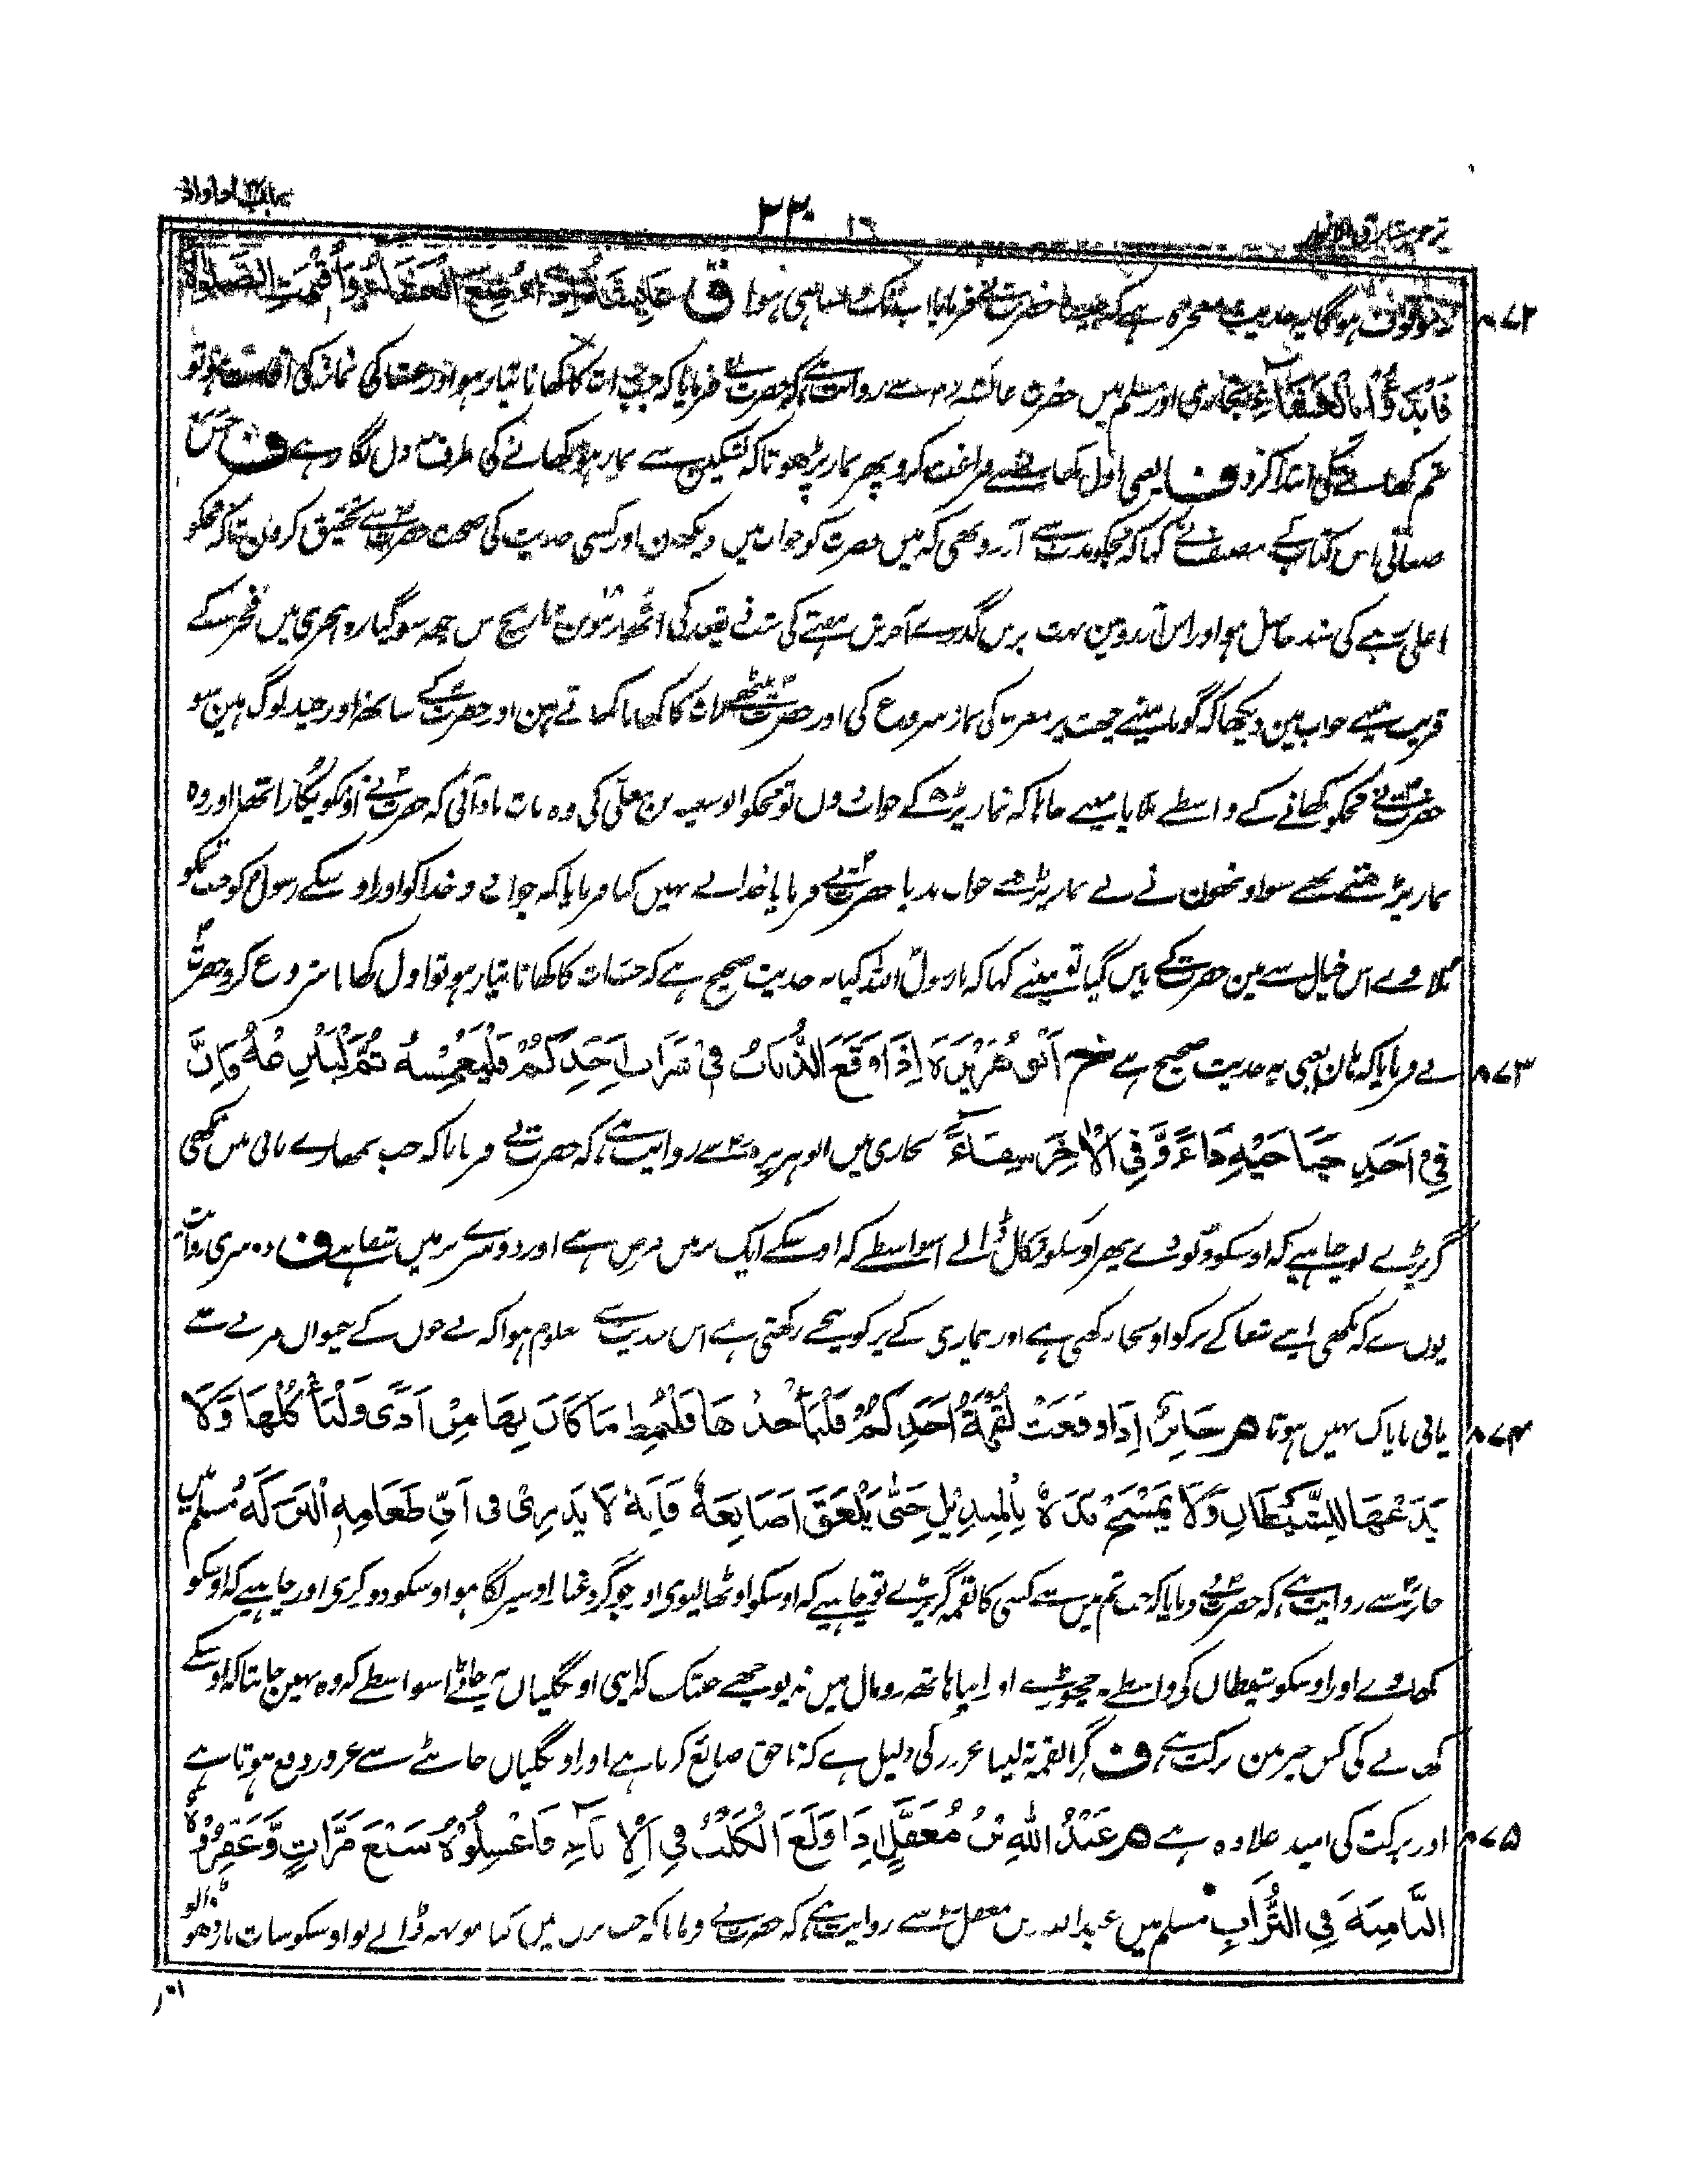 ۲۳۰
۸۷۲ موقوف ہوگا یہ حدیث معجزہ ہے کہ جیسا حضرت نے فرمایا اب تک ایسا ہی ہوا ق عایشة اذا وضع العشاء واقیمت الصلوة
فابدؤا بالعشاء بخاری اور مسلم میں حضرت عائشہ رض سے روایت ہے کہ حضرت نے فرمایا کہ جب رات کا کھانا تیار ہو اور عشا کی نماز کی اقامت ہو تو
تم کھانے کی ابتدا کرو ف یعنی اول کھانے سے فراغت کرو پھر نماز پڑھو تاکہ تسکین سے نماز ہو کھانے کی طرف دل نہ لگا رہے ف حسن
صغانی اس کتاب کے مصنف نے کہا کہ مجکو مدت سے آرزو تھی کہ میں حضرت کو خواب میں دیکھون اور کسی حدیث کی صحت حضرت سے تحقیق کرون تاکہ مجکو
اعلی رتبے کی سند حاصل ہو اور اس آرزو مین بہت برس گذرے آخرش ہفتے کی شب ذیقعد کی اٹھارہوین تاریخ سن چھہ سو گیارہ ہجری میں فجر کے
قریب مینے خواب مین دیکھا کہ گویا مینے چھت پر مغرب کی نماز شروع کی اور حضرت بیٹھے رات کا کھانا کھاتے ہین اور حضرت کے ساتھ اور چند لوگ ہین سو
حضرت نے مجکو کھانے کے واسطے بلایا مینے چاہا کہ نماز پڑھ کے جواب دوں تو مجکو ابو سعید بن معلی کی وہ بات یاد آئی کہ حضرت نے اونکو پکارا تھا اور وہ
نماز پڑھتے تھے سو اونھون نے نماز پڑھتے جواب ندیا حضرت نے فرمایا خدا نے نہیں کہا فرمایا کہ جواب دو خدا کو اور اوسکے رسول کو جب تمکو
بلاوے اس خیال سے مین حضرت کے پاس گیا تو مینے کہا کہ یا رسول اللہ کیا یہ حدیث صحیح ہے کہ جب رات کا کھانا تیار ہو تو اول کھانا شروع کرو حضرت
۸۷۳ نے فرمایا کہ ہان یعنی یہ حدیث صحیح ہے خ ابو هریرة اذا وقع الذباب فی شراب احدکم فلیغمسه ثم لینزعه فان
فی احد جناحیه داء وفی الاخر شفاء بخاری میں ابو ہریرہ رض سے روایت ہے کہ حضرت نے فرمایا کہ جب تمھارے پانی میں مکھی
گر پڑے تو چاہیے کہ اوسکو ڈبو دے پھر اوسکو نکال ڈالے اسواسطے کہ اوسکے ایک پر میں مرض ہے اور دوسرے پر میں شفا ہے ف دوسری روایت
یوں ہے کہ مکھی اپنے شفا کے پر کو اونچا رکھتی ہے اور بیماری کے پر کو نیچے رکھتی ہے اس حدیث سے معلوم ہوا کہ بے خون کے حیوان مرنے سے
۸۷۴ پانی ناپاک نہیں ہوتا م جابر اذا وقعت لقمة احدکم فلیأخذها فلیمط ما کان بها من اذی ولیأکلها ولا
یدعها للشیطان ولا یمسح یده بالمندیل حتی یلعق اصابعه فانه لا یدری فی ای طعامه البرکة مسلم میں
جابر سے روایت ہے کہ حضرت نے فرمایا کہ جب تم میں سے کسی کا لقمہ گر پڑے تو چاہیے کہ اوسکو اوٹھا لیوی اور جو گرد غبار اوسپر لگا ہو اوسکو دور کری اور چاہیے کہ اوسکو
کھاوے اور اوسکو شیطان کی واسطے نہ چھوڑے اور اپنا ہاتھ رومال میں نہ پوچھے جبتک کہ اپنی اونگلیاں نہ چاٹے اسواسطے کہ وہ نہین جانتا کہ اوسکے
کھانے کی کس چیز مین برکت ہے ف گرا لقمہ نہ لینا غرور کی دلیل ہے کہ ناحق ضایع کرنا ہے اور اونگلیاں چاٹنے سے غرور دفع ہوتا ہے
۸۷۵ اور برکت کی امید علاوہ ہے م عبد الله بن مغفل اذا ولغ الکلب فی الاناء فاغسلوه سبع مرات وعفروه
الثامنة فی التراب مسلم میں عبد اللہ بن مغفل سے روایت ہے کہ حضرت نے فرمایا کہ جب برتن میں کتا مونہہ ڈالے تو اوسکو سات بار دھو ڈالو